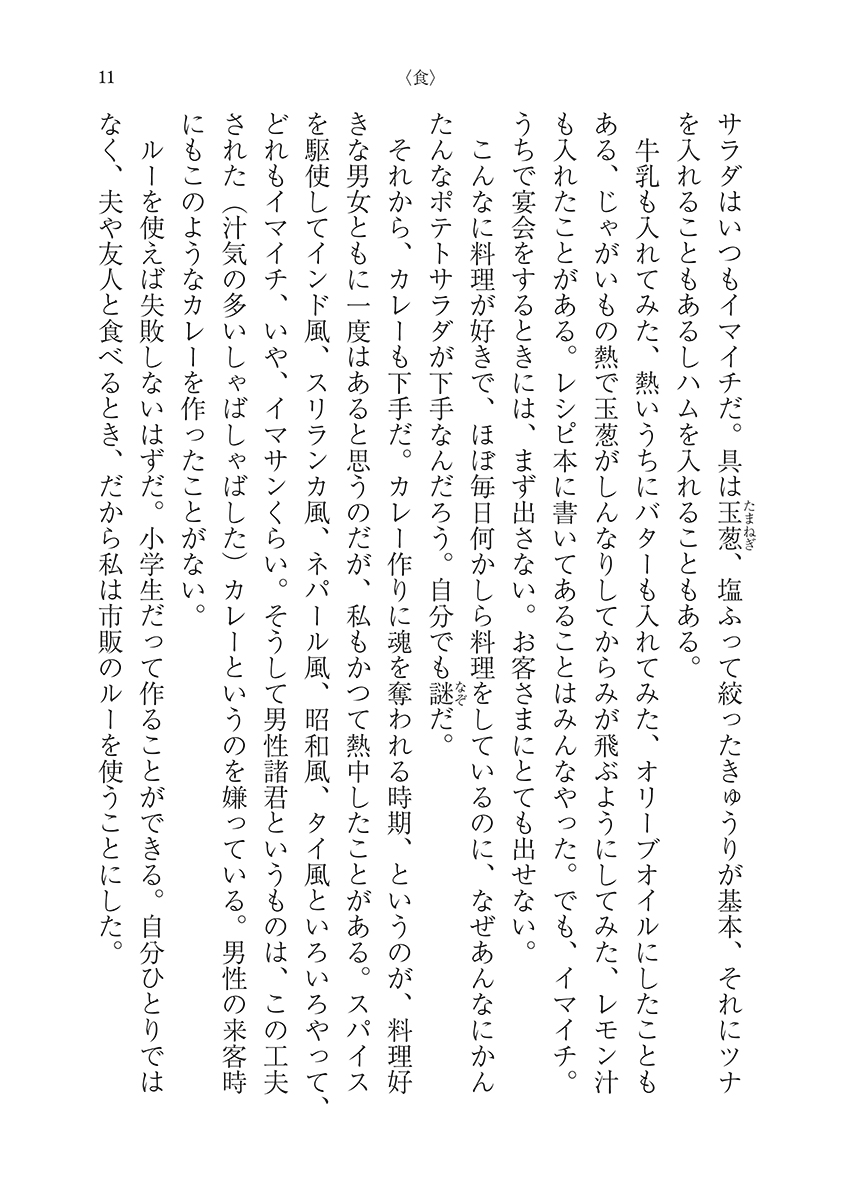 11
〈食〉
サラダはいつもイマイチだ。具は玉葱、塩ふって絞ったきゅうりが基本、それにツナ
たまねぎ
を入れることもあるしハムを入れることもある。
牛乳も入れてみた、熱いうちにバターも入れてみた、オリーブオイルにしたことも
ある、じゃがいもの熱で玉葱がしんなりしてからみが飛ぶようにしてみた、レモン汁
も入れたことがある。レシピ本に書いてあることはみんなやった。でも、イマイチ。
うちで宴会をするときには、まず出さない。お客さまにとても出せない。
こんなに料理が好きで、ほぼ毎日何かしら料理をしているのに、なぜあんなにかん
たんなポテトサラダが下手なんだろう。自分でも謎だ。
なぞ
それから、カレーも下手だ。カレー作りに魂を奪われる時期、というのが、料理好
きな男女ともに一度はあると思うのだが、私もかつて熱中したことがある。スパイス
を駆使してインド風、スリランカ風、ネパール風、昭和風、タイ風といろいろやって、
どれもイマイチ、いや、イマサンくらい。そうして男性諸君というものは、この工夫
された（汁気の多いしゃばしゃばした）カレーというのを嫌っている。男性の来客時
にもこのようなカレーを作ったことがない。
ルーを使えば失敗しないはずだ。小学生だって作ることができる。自分ひとりでは
なく、夫や友人と食べるとき、だから私は市販のルーを使うことにした。